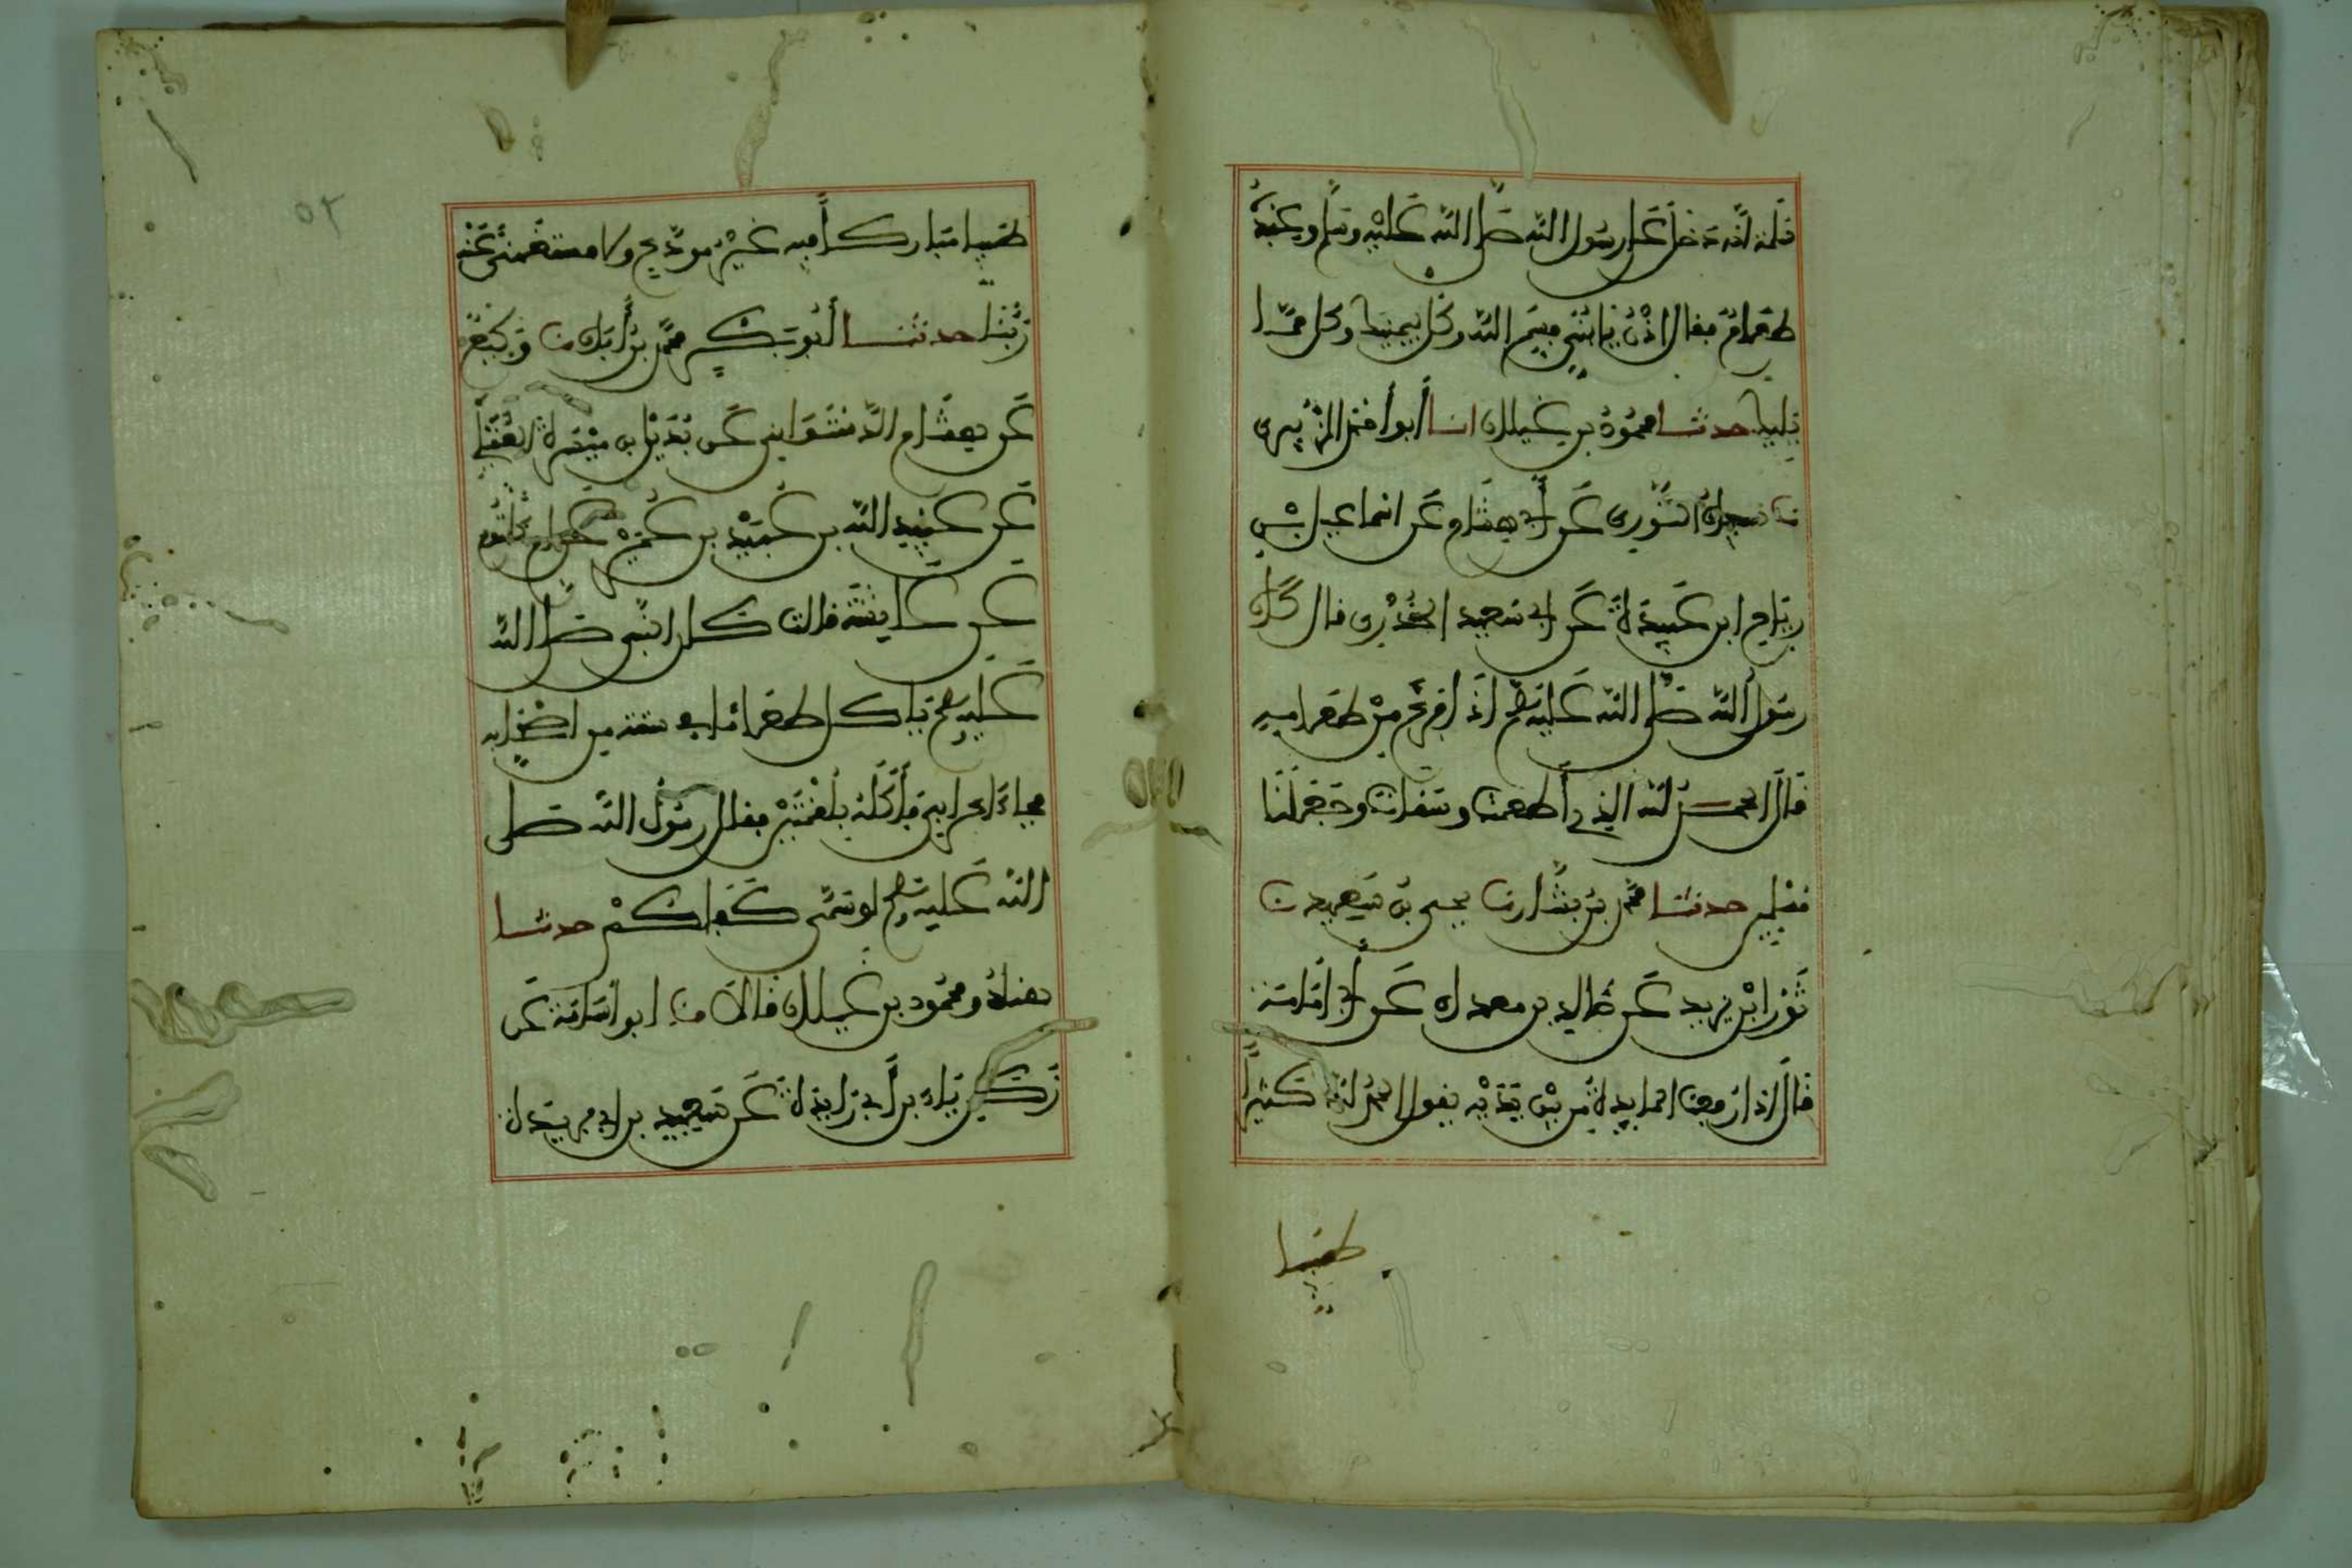 سلمة أنه دخل على رسول الله صلى الله عليه وسلم وعنده
طعام فقال ادن يا بني فسم الله وكل بيمينك وكل مما
يليك حدثنا محمود بن غيلان انا أبو أحمد الزبيري
نا سفيان الثوري عن أبي هشام عن اسماعيل بن
رباح ابن عبيدة عن ابي سعيد الخدري قال كان
رسول الله صلى الله عليه وسلم اذا فرغ من طعامه
قال الحمد لله الذي أطعمنا وسقانا وجعلنا
مسلمين حدثنا محمد بن بشار نا يحيى بن سعيد نا
ثور ابن يزيد عن خالد بن معدان عن أبي امامة
قال اذا رفعت المايدة من بين يديه يقول الحمد لله كثيرا
طيبا
طيبا مباركا فيه غير مودع ولا مستغنى عنه
ربنا حدثنا أبو بكر محمد بن أبان نا وكيع
عن هشام الدستوايي عن بديل بن ميسرة العقيلي
عن عبيد الله بن عبيد بن عمير عن ام كلثوم
عن عايشة قالت كان النبي صلى الله
عليه وسلم ياكل طعاما في ستة من اصحابه
فجاء اعرابي فأكله بلقمتين فقال رسول الله صلى
الله عليه وسلم لو سمى كفاكم حدثنا
هناد ومحمود بن غيلان قالا نا ابو اسامة عن
زكرياء بن أبي زايدة عن سعيد بن ابي بردة
٥٢